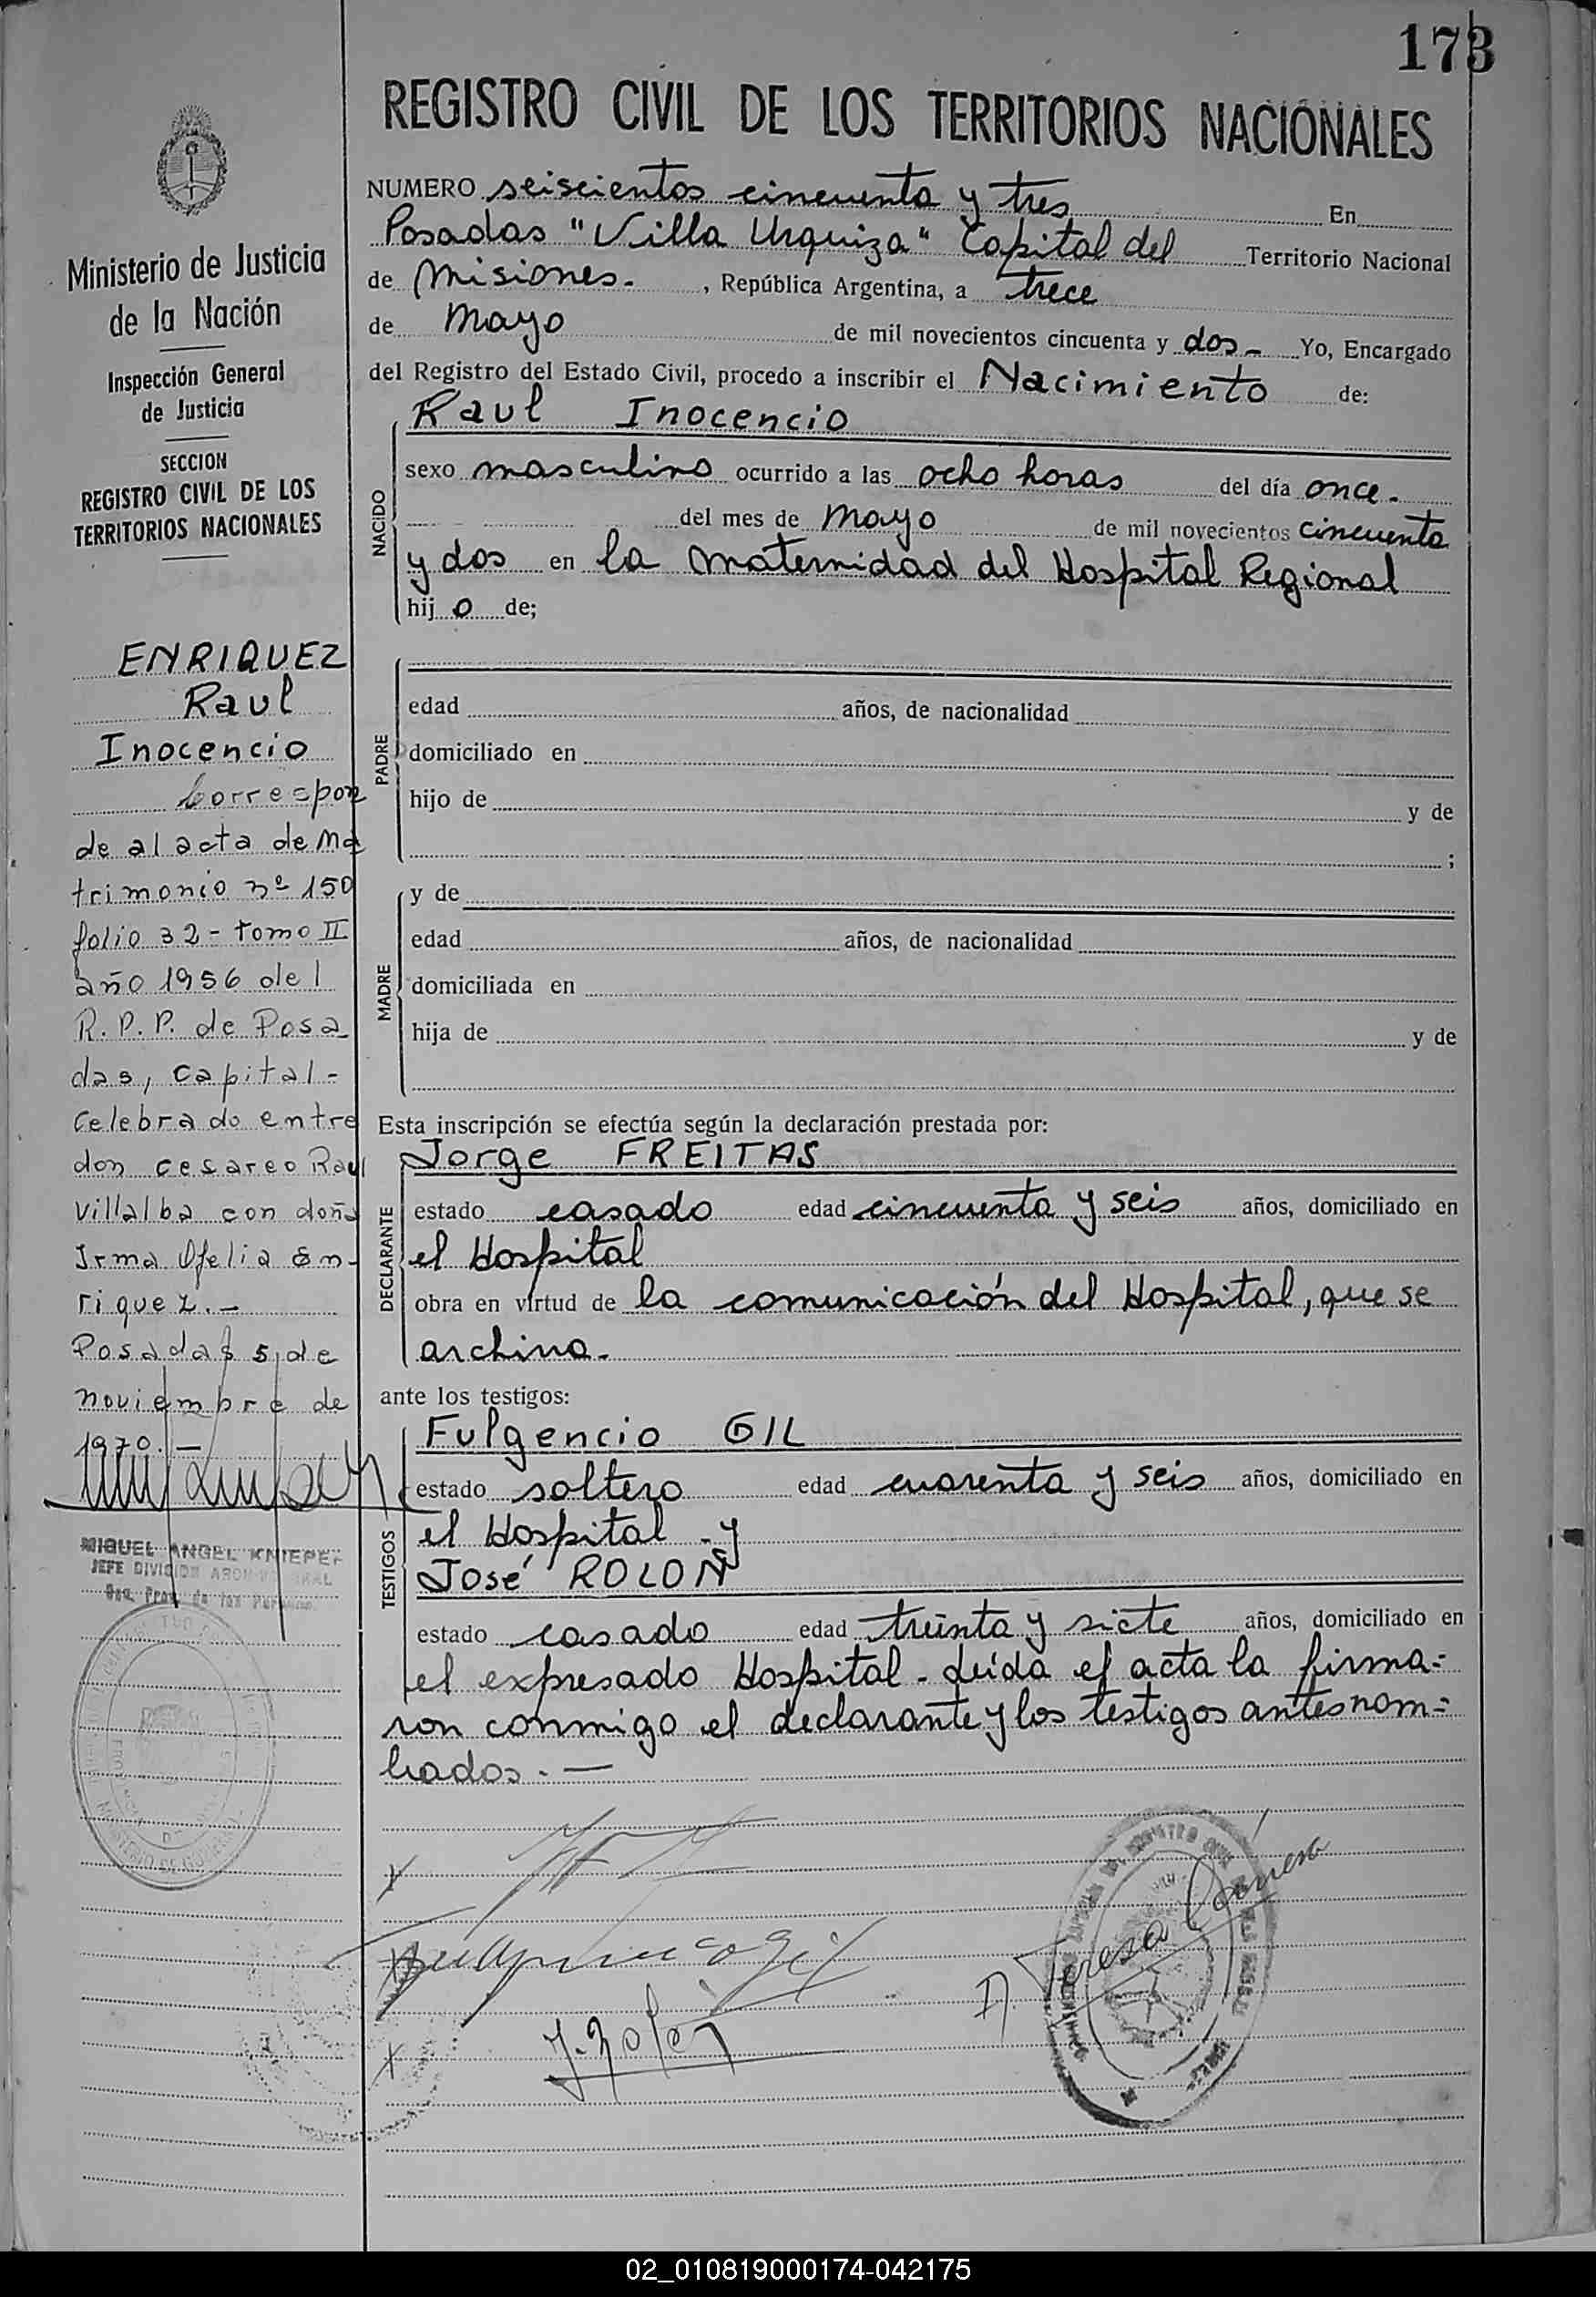 173
REGISTRO CIVIL DE LOS TERRITORIOS NACIONALES
Ministerio de Justicia
de la Nación
Inspección General
de Justicia
SECCION
REGISTRO CIVIL DE LOS
TERRITORIOS NACIONALES
ENRIQUEZ
Raul
Inocencio
Correspon
de al acta de Ma
trimonio nº 150
folio 32 - tomo II
año 1956 del
R.P.P. de Posa
das, Capital -
Celebrado entre
don Cesareo Raul
Villalba con doña
Irma Ofelia En-
riquez. -
Posadas 5 de
noviembre de
1970. -
MIGUEL ANGEL KNIEPER
JEFE DIVISION
NUMERO seiscientos cincuenta y tres En
Posadas "Villa Urquiza" Capital del Territorio Nacional
de Misiones. , República Argentina, a trece
de Mayo de mil novecientos cincuenta y dos - Yo, Encargado
del Registro del Estado Civil, procedo a inscribir el Nacimiento de:
Raul Inocencio
NACIDO
sexo masculino ocurrido a las ocho horas del día once.
del mes de Mayo de mil novecientos cincuenta
y dos en la Maternidad del Hospital Regional
hijo de;
PADRE
edad años, de nacionalidad
domiciliado en
hijo de y de
;
MADRE
y de
edad años, de nacionalidad
domiciliada en
hija de y de
Esta inscripción se efectúa según la declaración prestada por:
DECLARANTE
Jorge FREITAS
estado casado edad cincuenta y seis años, domiciliado en
el Hospital
obra en virtud de la comunicación del Hospital, que se
archiva.
ante los testigos:
TESTIGOS
Fulgencio GIL
estado soltero edad cuarenta y seis años, domiciliado en
el Hospital - y
José ROLON
estado casado edad treinta y siete años, domiciliado en
el expresado Hospital - Leída el acta la firma=
ron conmigo el declarante y los testigos antes nom=
brados. -
J. Rolon
D. Teresa
02_010819000174-042175